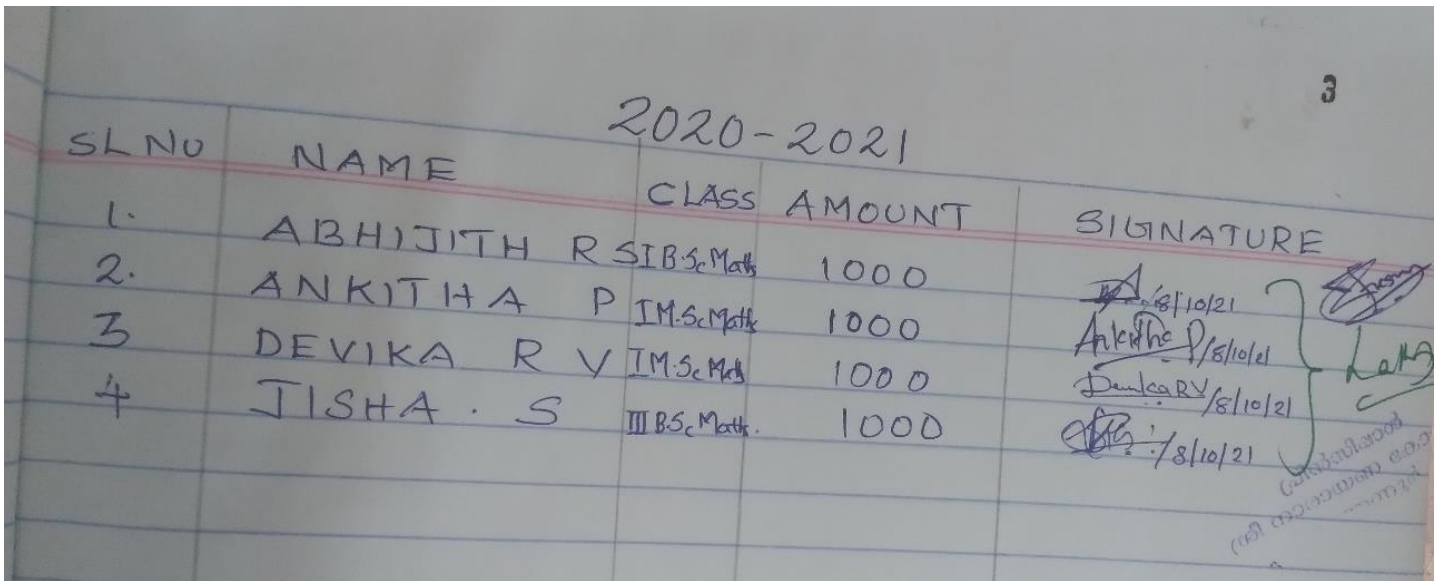 3
2020-2021
SL NO NAME CLASS AMOUNT SIGNATURE
1. ABHIJITH R S I B.Sc Maths 1000 /8/10/21
2. ANKITHA P I M.Sc Maths 1000 Ankitha P/8/10/21
3 DEVIKA R V I M.Sc Maths 1000 Devika RV/8/10/21
4 JISHA . S III B.Sc Maths. 1000 /8/10/21
പ്രിൻസിപ്പാൾ
ശ്രീ നാരായണ കോ